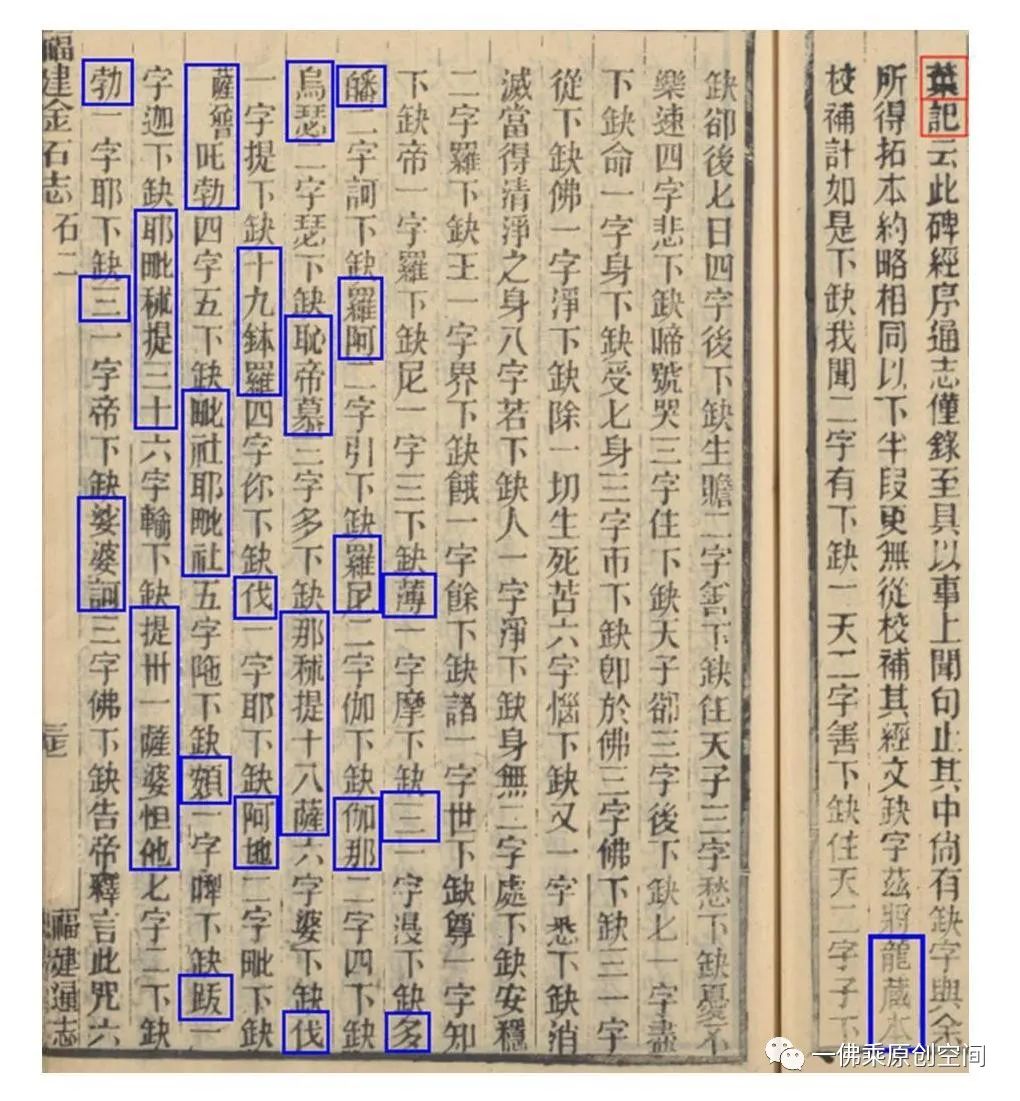 葉記云此碑經序通志僅錄至具以事上聞句止其中尚有缺字與余
所得拓本約略相同以下半段更無從校補其經文缺字茲將龍藏本
校補計如是下缺我聞二字有下缺一天二字善下缺住天二字子下
缺卻後七日四字後下缺生贍二字害下缺住天子三字愁下缺憂不
樂速四字悲下缺啼號哭三字住下缺天子卻三字後下缺七一字盡
下缺命一字身下缺受七身三字帀下缺卽於佛三字佛下缺三一字
從下缺佛一字淨下缺除一切生死苦六字惱下缺又一字悉下缺消
滅當得清淨之身八字若下缺人一字淨下缺身無二字處下缺安穩
二字羅下缺王一字界下缺餓一字餘下缺諸一字世下缺尊一字知
下缺帝一字羅下缺尼一字三下缺薄一字摩下缺三一字漫下缺多
皤二字訶下缺羅阿二字引下缺羅尼二字伽下缺伽那二字四下缺
烏瑟二字瑟下缺恥帝慕三字多下缺那秫提十八薩六字婆下缺伐
一字提下缺十九鉢羅四字你下缺伐一字耶下缺阿地二字毗下缺
薩嚩吒勃四字五下缺毗社耶毗社五字陁下缺頞一字啤下缺跋一
字迦下缺耶毗秫提三十六字輸下缺提卅一薩婆怛他七字二下缺
勃一字耶下缺三一字帝下缺娑婆訶三字佛下缺告帝釋言此咒六
福建金石志 石二
福建通志
一佛乘原创空间